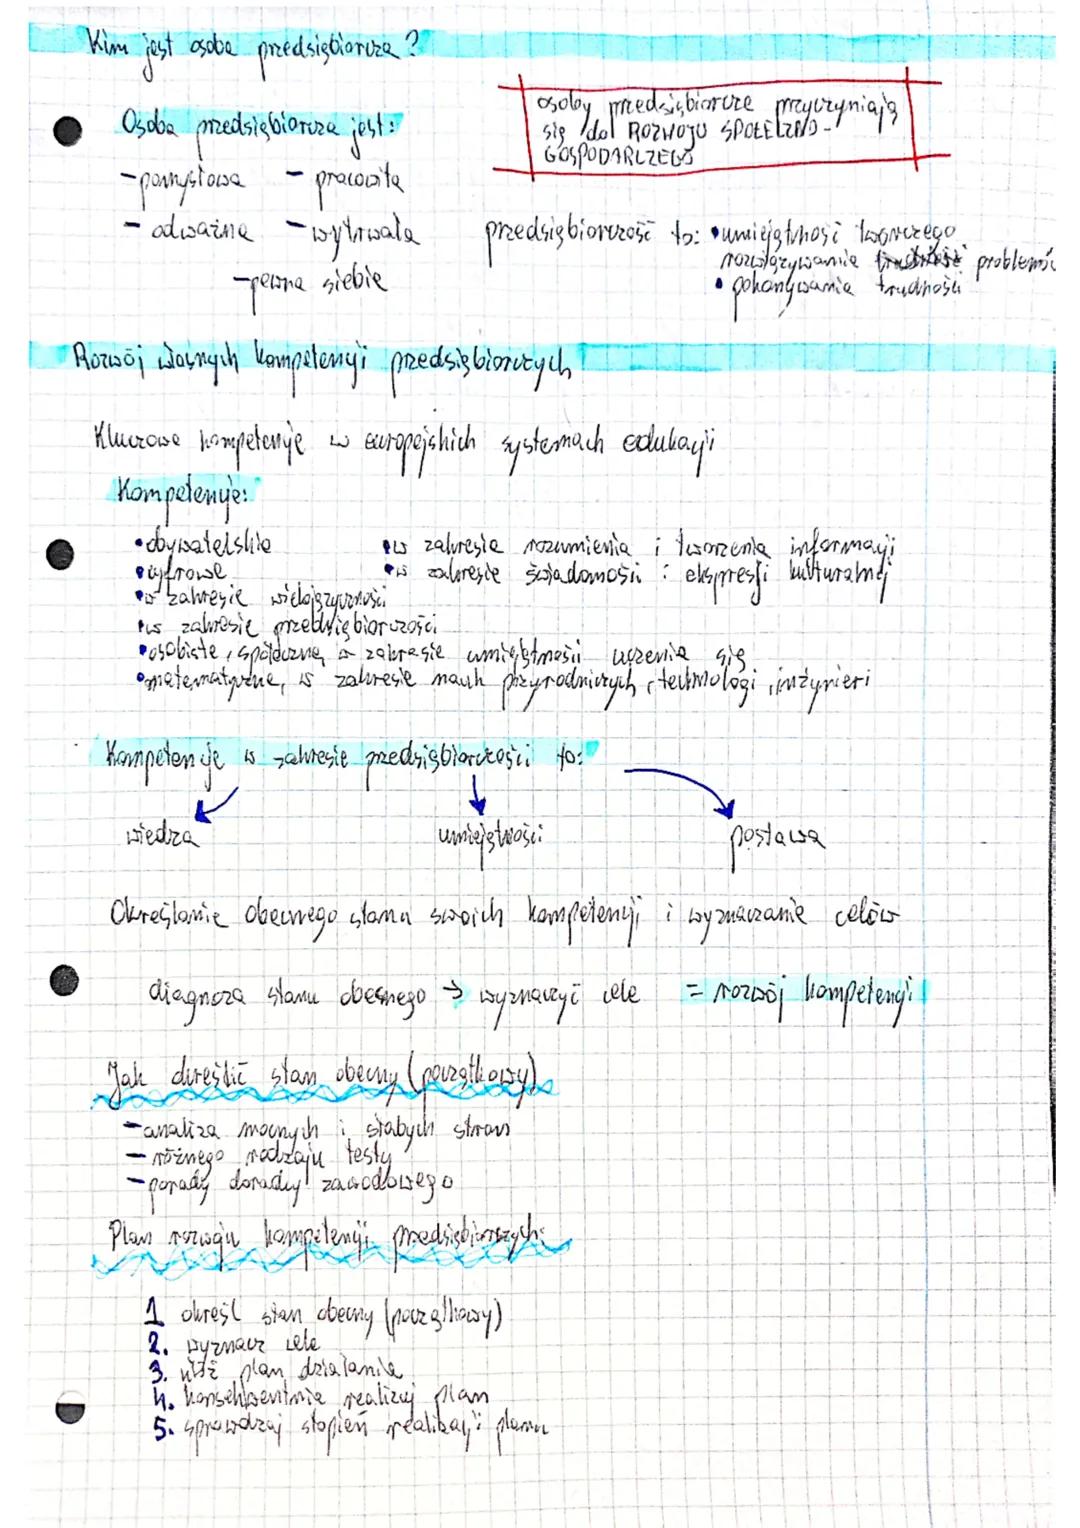 Kim jest osoba przedsiębiorcza?
osoby przedsiębiorcze przyczyniają
się do ROZWOJU SPOŁECZNO-
GOSPODARCZEGO
Osoba przedsiębiorcza jest:
- pomysłowa - pracowita
- odważna - wytrwała
- pewna siebie
przedsiębiorczość to: • umiejętność twórczego
rozwiązywania problemów
• pokonywania trudności
Rozwój własnych kompetencji przedsiębiorczych
Kluczowe kompetencje w europejskich systemach edukacji
Kompetencje:
• obywatelskie
• cyfrowe
• w zakresie wielojęzyczności
• w zakresie przedsiębiorczości
• osobiste, społeczne, w zakresie umiejętności uczenia się
• matematyczne, w zakresie nauk przyrodniczych, technologi, inżynieri
• w zakresie rozumienia i tworzenia informacji
• w zakresie świadomości i ekspresji kulturalnej
Kompetencje w zakresie przedsiębiorczości to:
wiedza umiejętności postawa
Określanie obecnego stanu swoich kompetencji i wyznaczanie celów
diagnoza stanu obecnego → wyznaczyć cele = rozwój kompetencji
Jak określić stan obecny (początkowy)
- analiza mocnych i słabych stron
- różnego rodzaju testy
- porady doradcy zawodowego
Plan rozwoju kompetencji przedsiębiorczych:
1 określ stan obecny (początkowy)
2. wyznacz cele
3. ułóż plan działania
4. konsekwentnie realizuj plan
5. sprawdzaj stopień realizacji planu